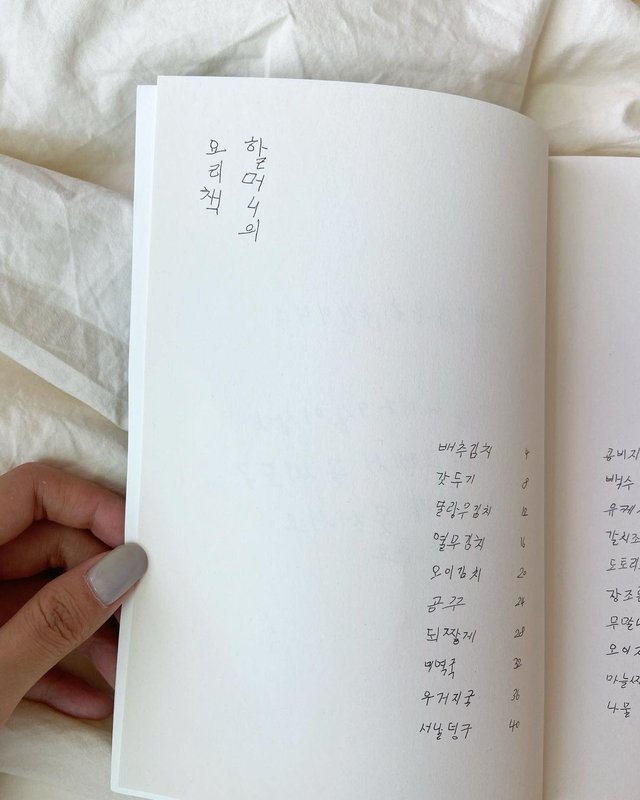 할머니의
요리책
배추김치 4
갓두기 8
김치 12
열무김치 16
오이김치 20
24
28
미역국 32
우거지국 36
서날덩구 40
콩비지
백수
유케
갈시조
도토리
장조
무말
오이
마늘
나물